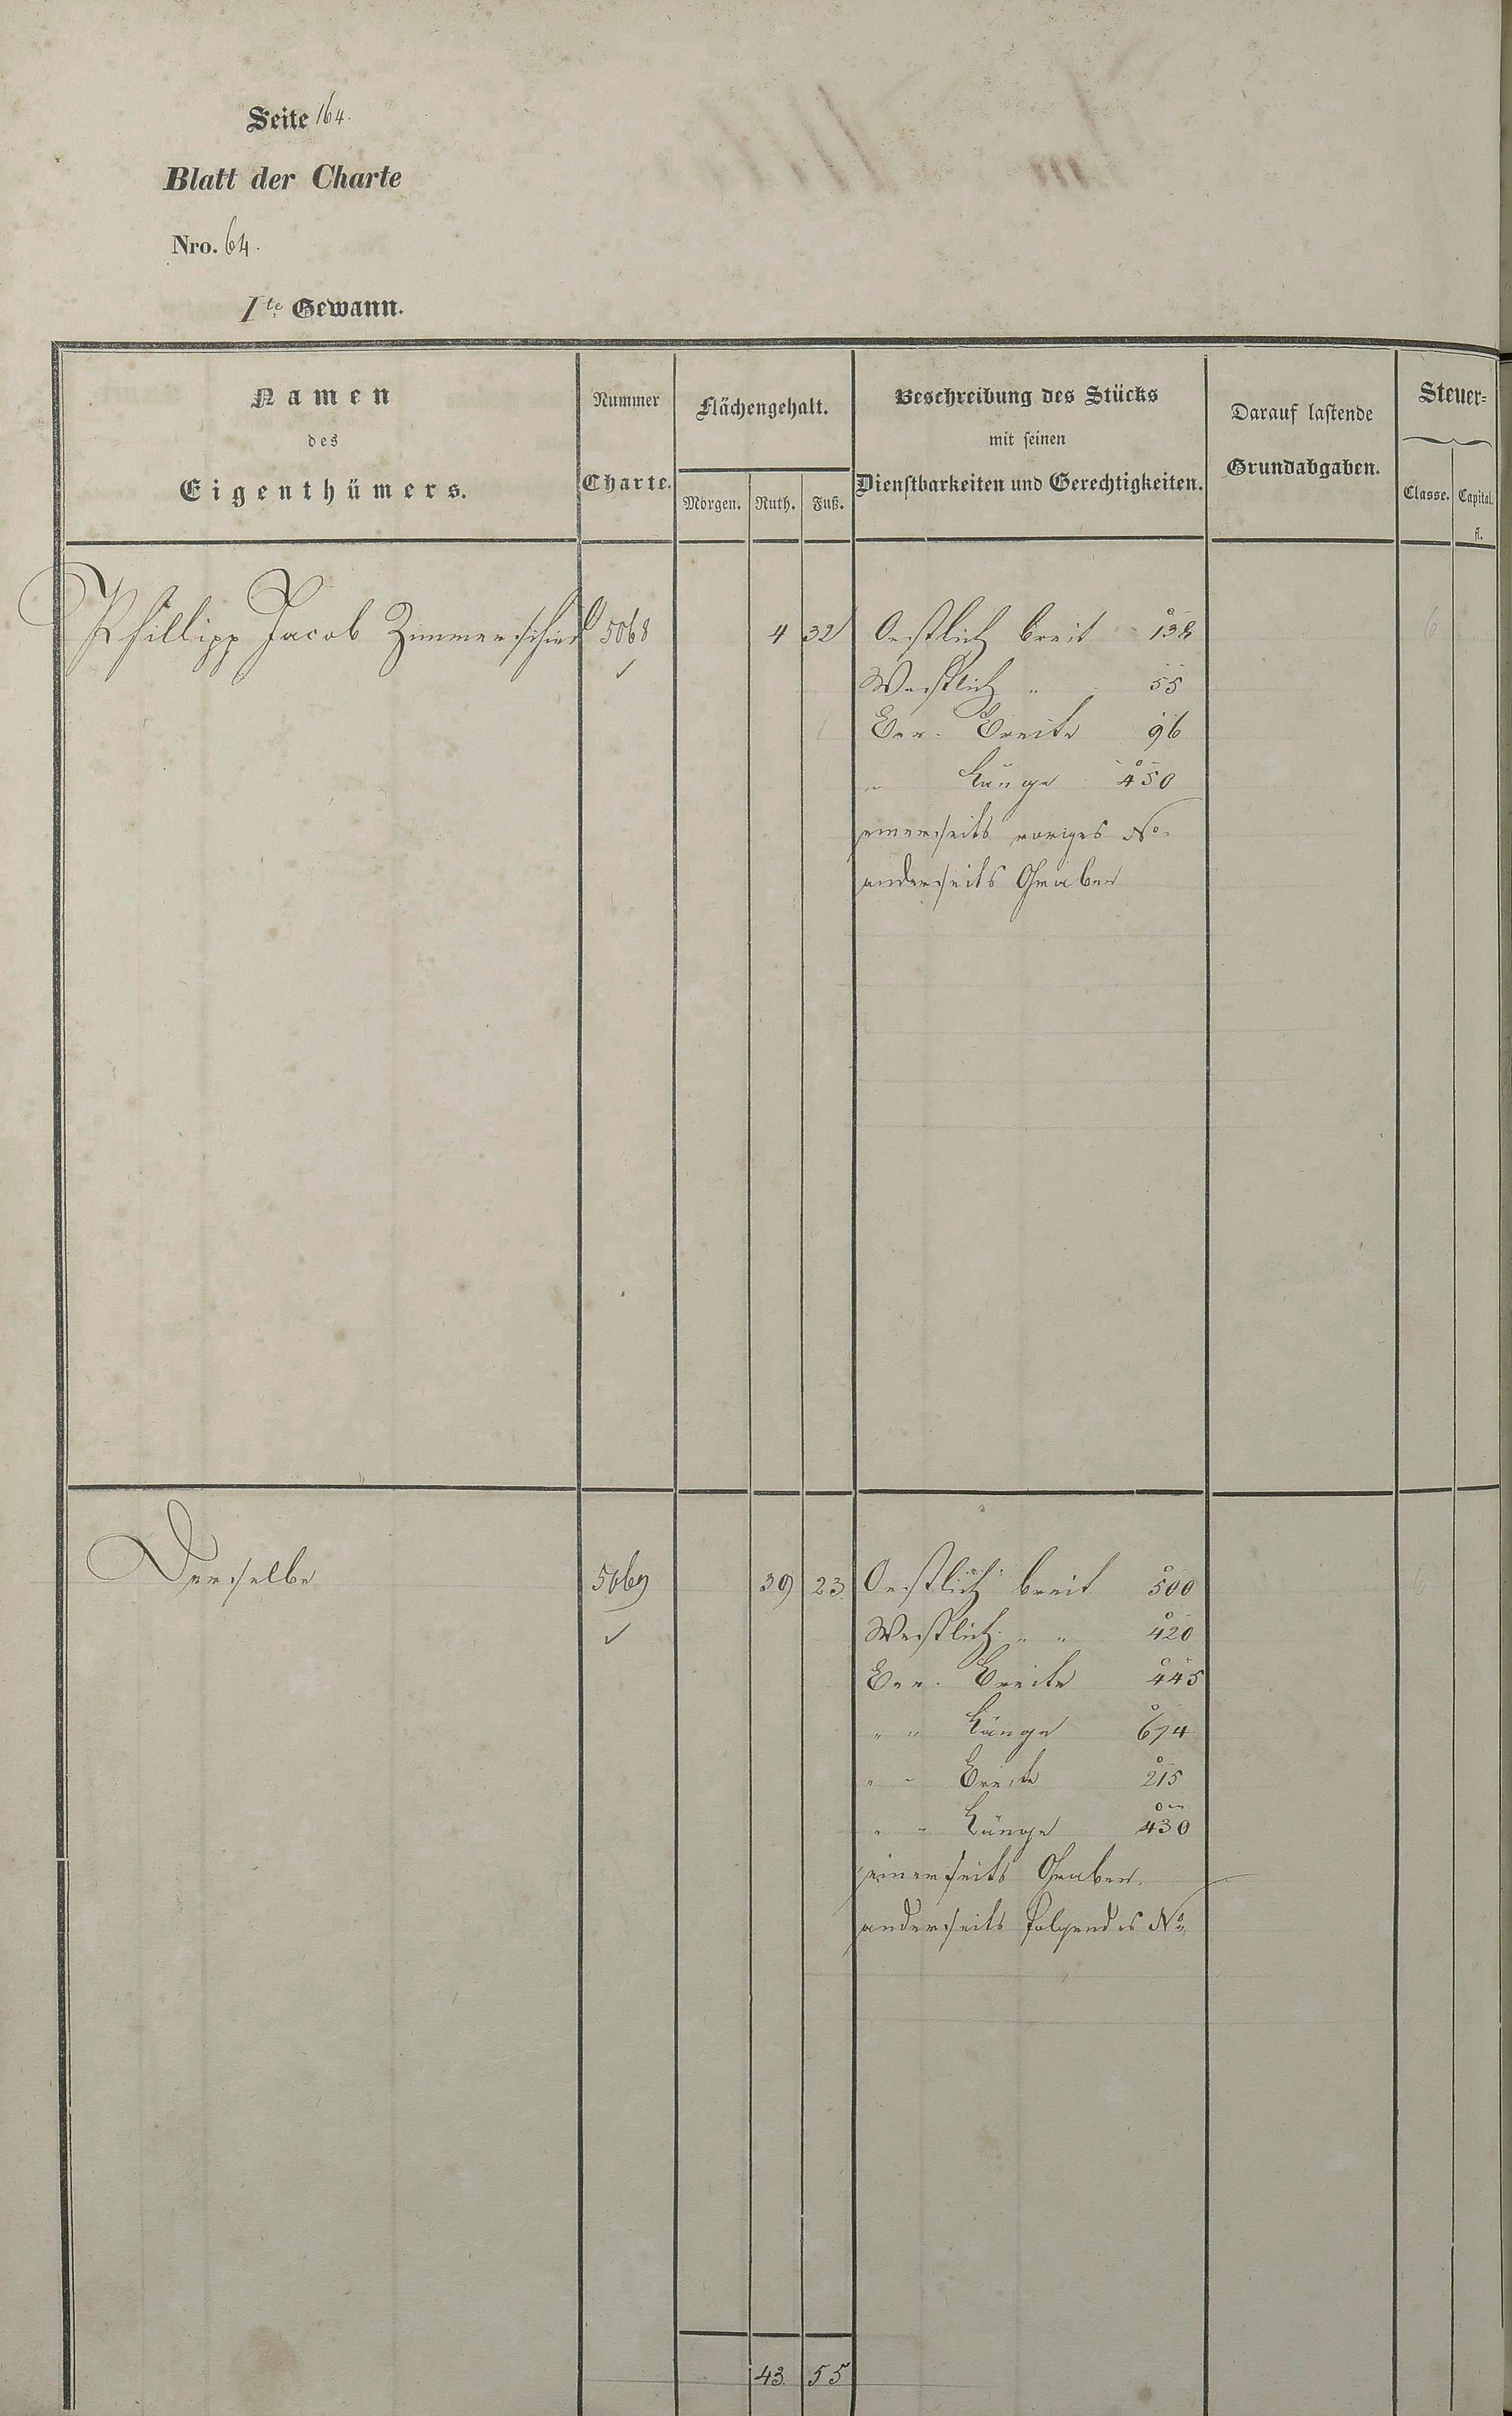 Seite 164.
Blatt der Charte
Nro. 64.
1te Gewann.
Namen
des
Eigenthümers.
Nummer
Charte.
Flächengehalt.
Morgen. Ruth. Fuß.
Beschreibung des Stücks
mit seinen
Dienstbarkeiten und Gerechtigkeiten.
Darauf lastende
Grundabgaben.
Steuer-
Classe. Capital.
fl.
Phillipp Jacob Zimmerschied 5068 4 32 Oestlich breit 138 6
Westlich " 55
Ber. Breite 96
" Länge 450
einerseits voriges No.
anderseits Graben
Derselbe 5069 39 23. Oestlich breit 500 6
Westlich " " 420
Ber. Breite 445
" " Länge 674
" " Breite 215
" " Länge 430
einerseits Graben.
anderseits folgendes No.
43. 55